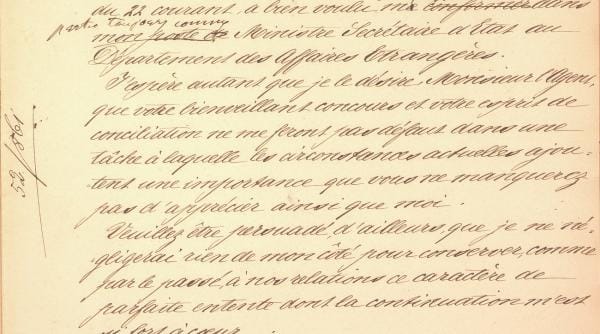 du 22 courant, a bien voulu me confirmer dans
mon poste de Ministre Secrétaire d'Etat au
Département des Affaires Etrangères.
J'espère autant que je le désire, Monsieur l'Agent,
que votre bienveillant concours et votre esprit de
conciliation ne me feront pas défaut dans une
tâche à laquelle les circonstances actuelles ajou-
tent une importance que vous ne manquerez
pas d'apprécier ainsi que moi.
Veuillez être persuadé d'ailleurs, que je ne né-
gligerai rien de mon côté pour conserver, comme
par le passé, à nos relations ce caractère de
parfaite entente dont la continuation m'est
si fort à cœur.